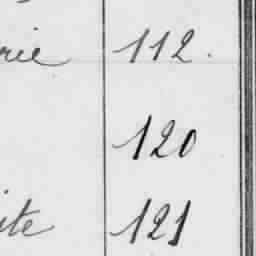 rie 112.
120
ite 121